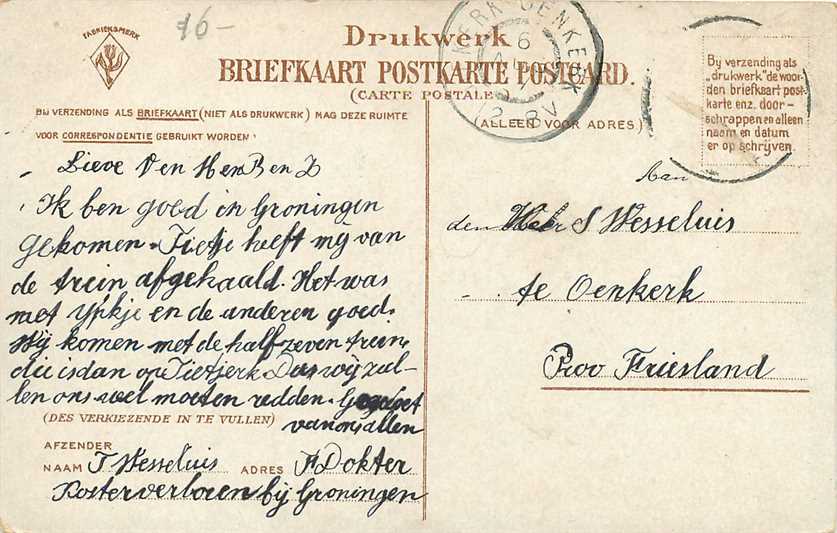 16-
FABRIEKSMERK
Drukwerk
BRIEFKAART POSTKARTE POSTCARD.
(CARTE POSTALE)
BIJ VERZENDING ALS BRIEFKAART (NIET ALS DRUKWERK) MAG DEZE RUIMTE
VOOR CORRESPONDENTIE GEBRUIKT WORDEN
(ALLEEN VOOR ADRES)
By verzending als
„drukwerk" de woor-
den briefkaart post-
karte enz. door-
schrappen en alleen
naam en datum
er op schrijven.
OENKERK
6
8V
Lieve V en M en B en
Ik ben goed in Groningen
gekomen. Tietje heeft mij van
de trein afgehaald. Het was
met Ypkje en de anderen goed.
Wij komen met de half zeven trein
die is dan op Tietjerk Dus wij zul-
len ons wel moeten redden. Gegroet
van ons allen
(DES VERKIEZENDE IN TE VULLEN)
AFZENDER
NAAM T Wesseluis ADRES F Dokter
Kosterverloren bij Groningen
Aan
den Heer S Wesseluis
te Oenkerk
Prov Friesland